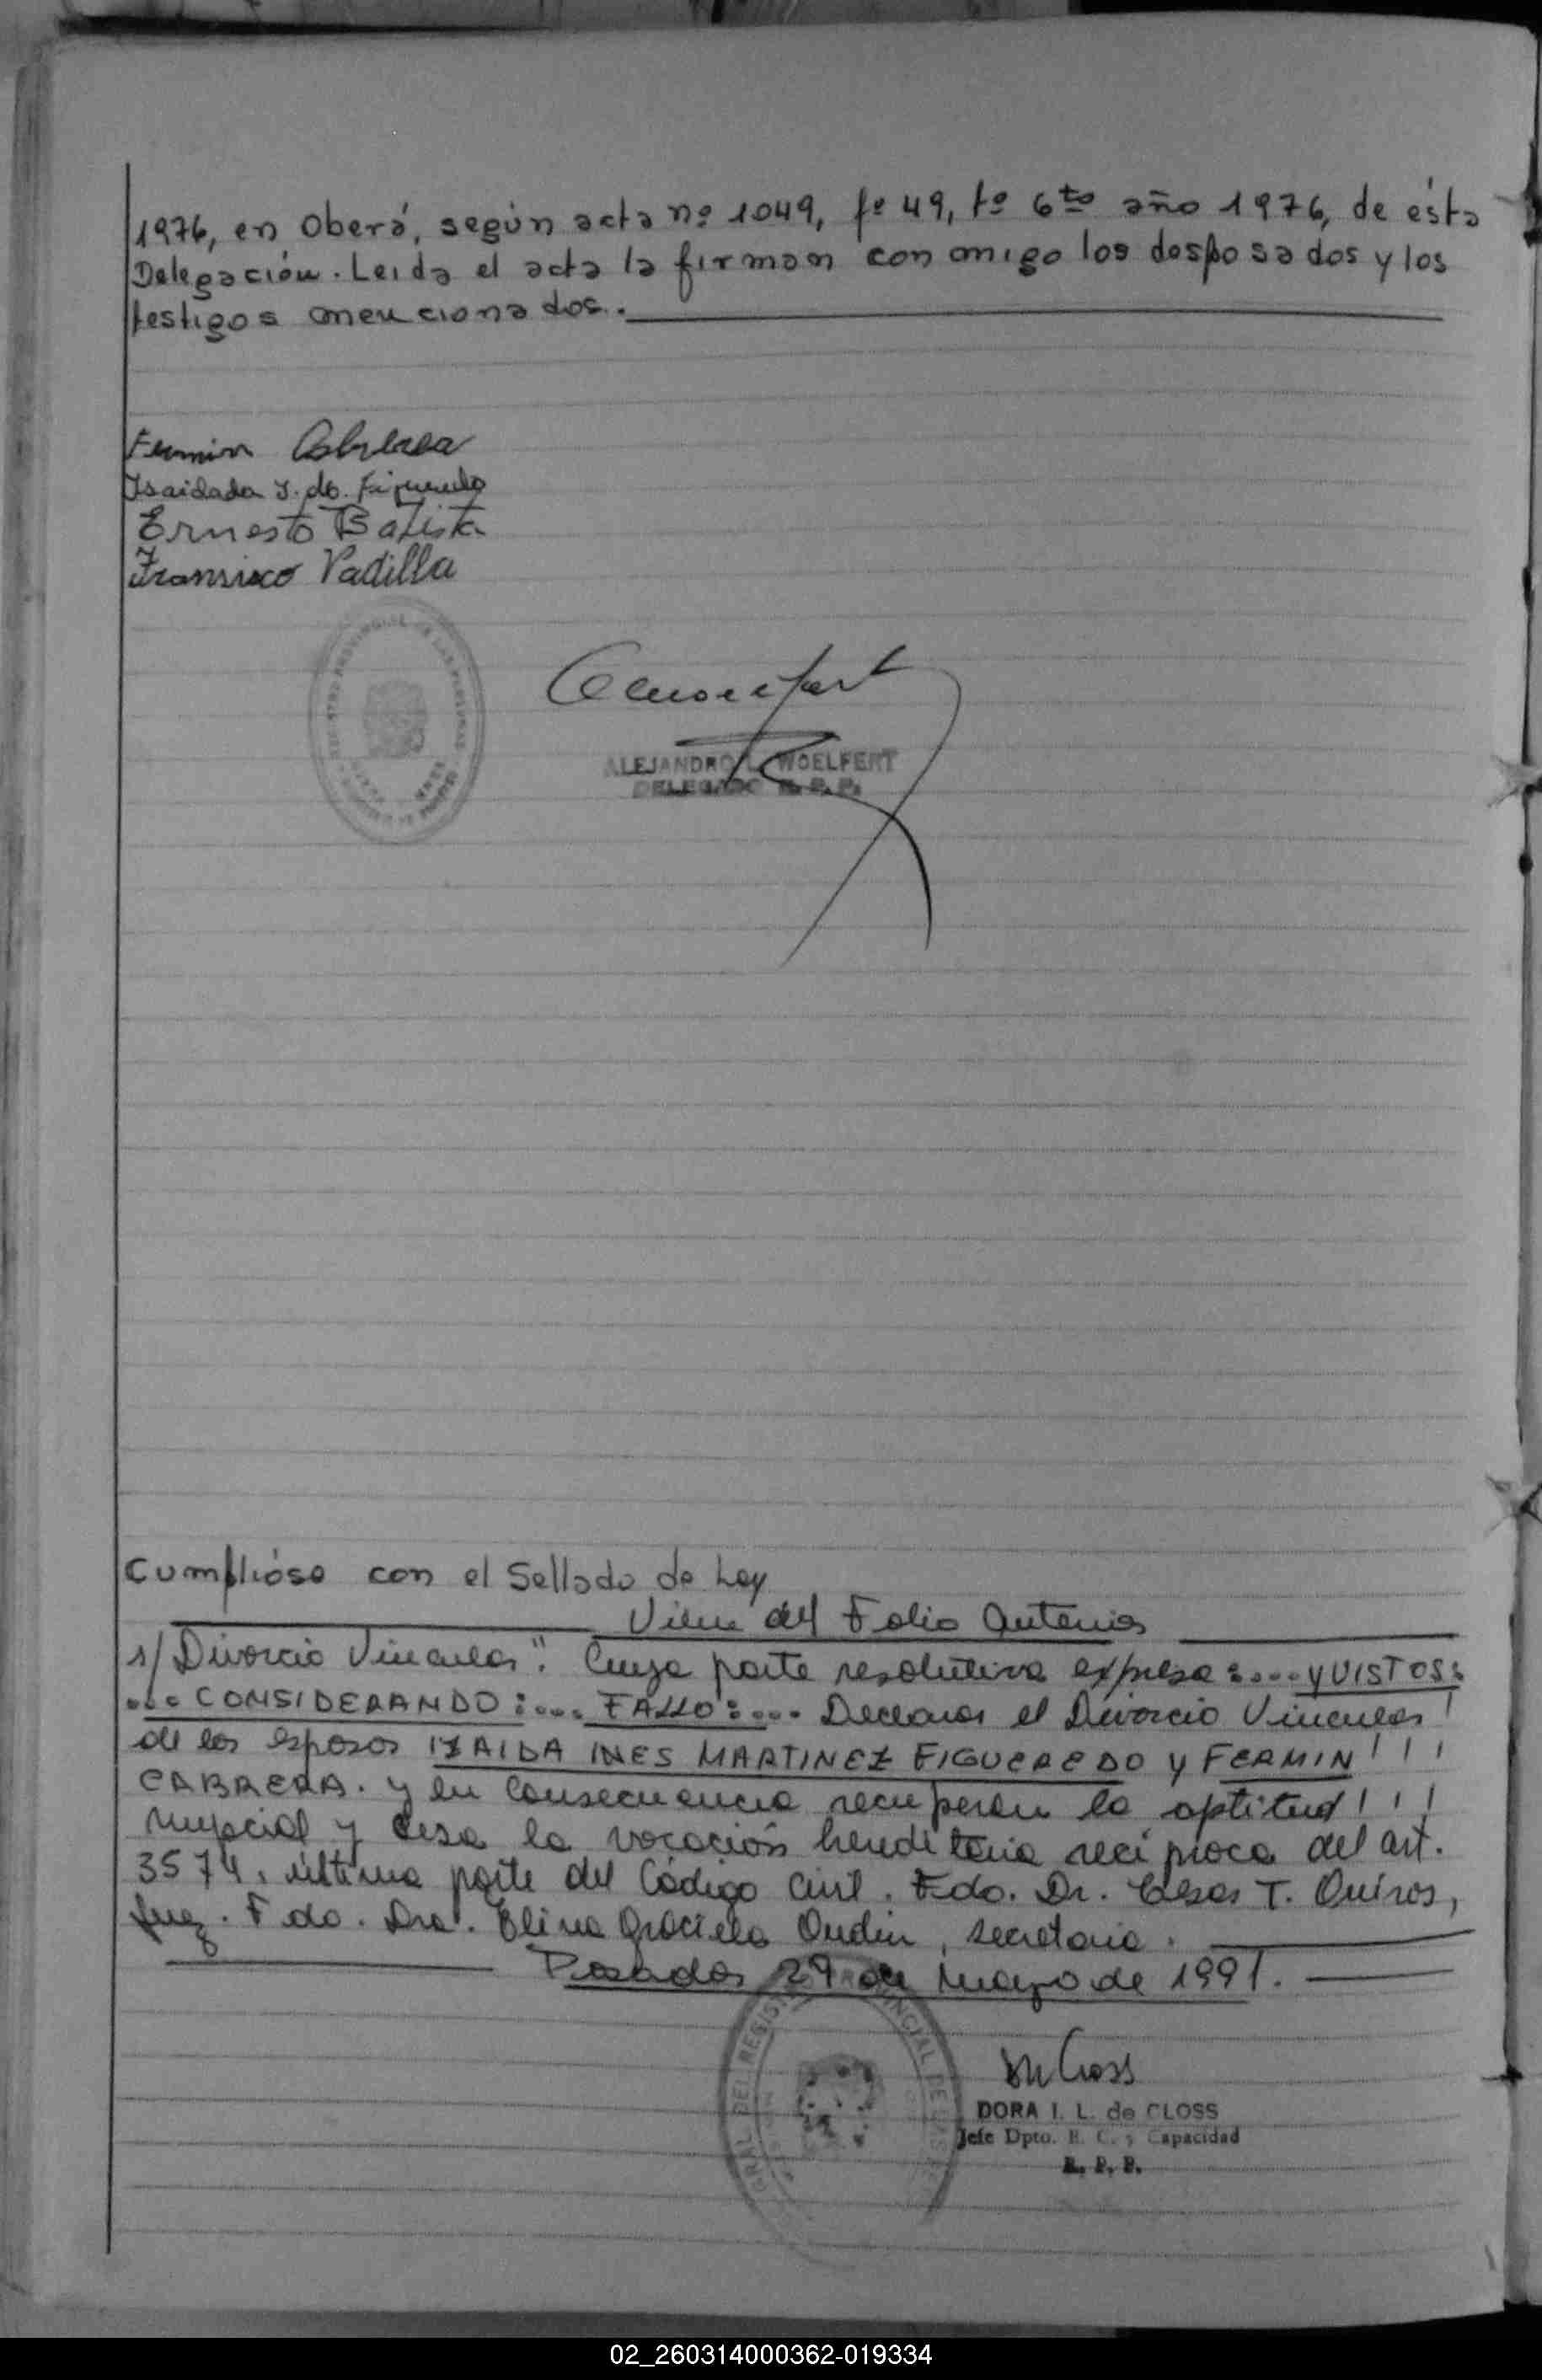 1976, en Oberá, según acta nº 1049, fº 49, tº 6to año 1976, de ésta
Delegación. Leida el acta la firman conmigo los desposados y los
testigos mencionados.
Fermin Cabrera
Isaidada I. de. Figueredo
Ernesto Batista
Fransisco Padilla
ALEJANDRO L. WOELFERT
DELEGADO R. P. P.
Cumplióse con el Sellado de Ley
Viene del Folio Anterior
s/ Divorcio Vincular". Cuya parte resolutiva expresa:.... y VISTOS:
... CONSIDERANDO:.... FALLO:.... Declarar el Divorcio Vincular!
de los esposos IZAIDA INES MARTINEZ FIGUEREDO y FERMIN!!!
CABRERA. y en Consecuencia recuperan la aptitud!!!
nupcial y cesa la vocación hereditaria recíproca del art.
3574, última parte del Código Civil. Fdo. Dr. Cesar T. Quiros,
Juez. Fdo. Dra. Elina Graciela Oudin, secretaria.
Posadas 29 de Mayo de 1991.
DORA I. L. de CLOSS
Jefe Dpto. E. C. y Capacidad
R. P. P.
02_260314000362-019334